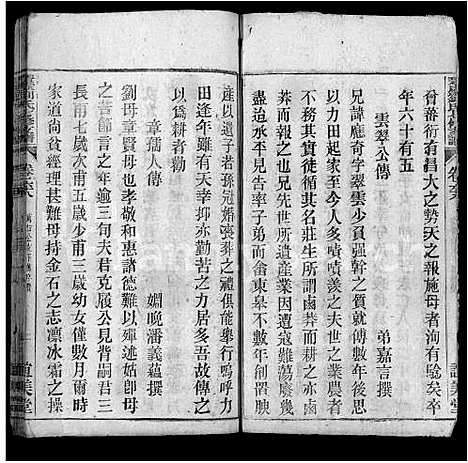 曾蕃衍有昌大之勢天之報施母者洵有驗矣卒
年六十有五
雲翠公傳
弟嘉言撰
兄諱應奇字翠雲少員強幹之質就傅數年
力田起家至今嘖嘖羨之夫世之業農者
莽而或鹵其名莊生所謂鹵莽而耕之亦
兄先世所遺產業因遭寇難蕩
盡迨承平見吾率子弟而畬東皋不數年創置腴
產以遺子若孫冠婚喪葬之禮俱能舉行嗚呼
田逢年雖有天幸抑亦勤苦之力居多故傳之
以為耕者勸
章孺人傳
姻晚潘義蘊撰
劉母章賢母也孝敬和惠諸德難以殫述姑即母
之善節言之年逾三旬夫君克履公見背嗣君三
長甫七歲次甫五歲少甫三歲幼女僅數月爾時
家道尚貧經理甚難母持金石之志凜冰霜之操
誼美堂